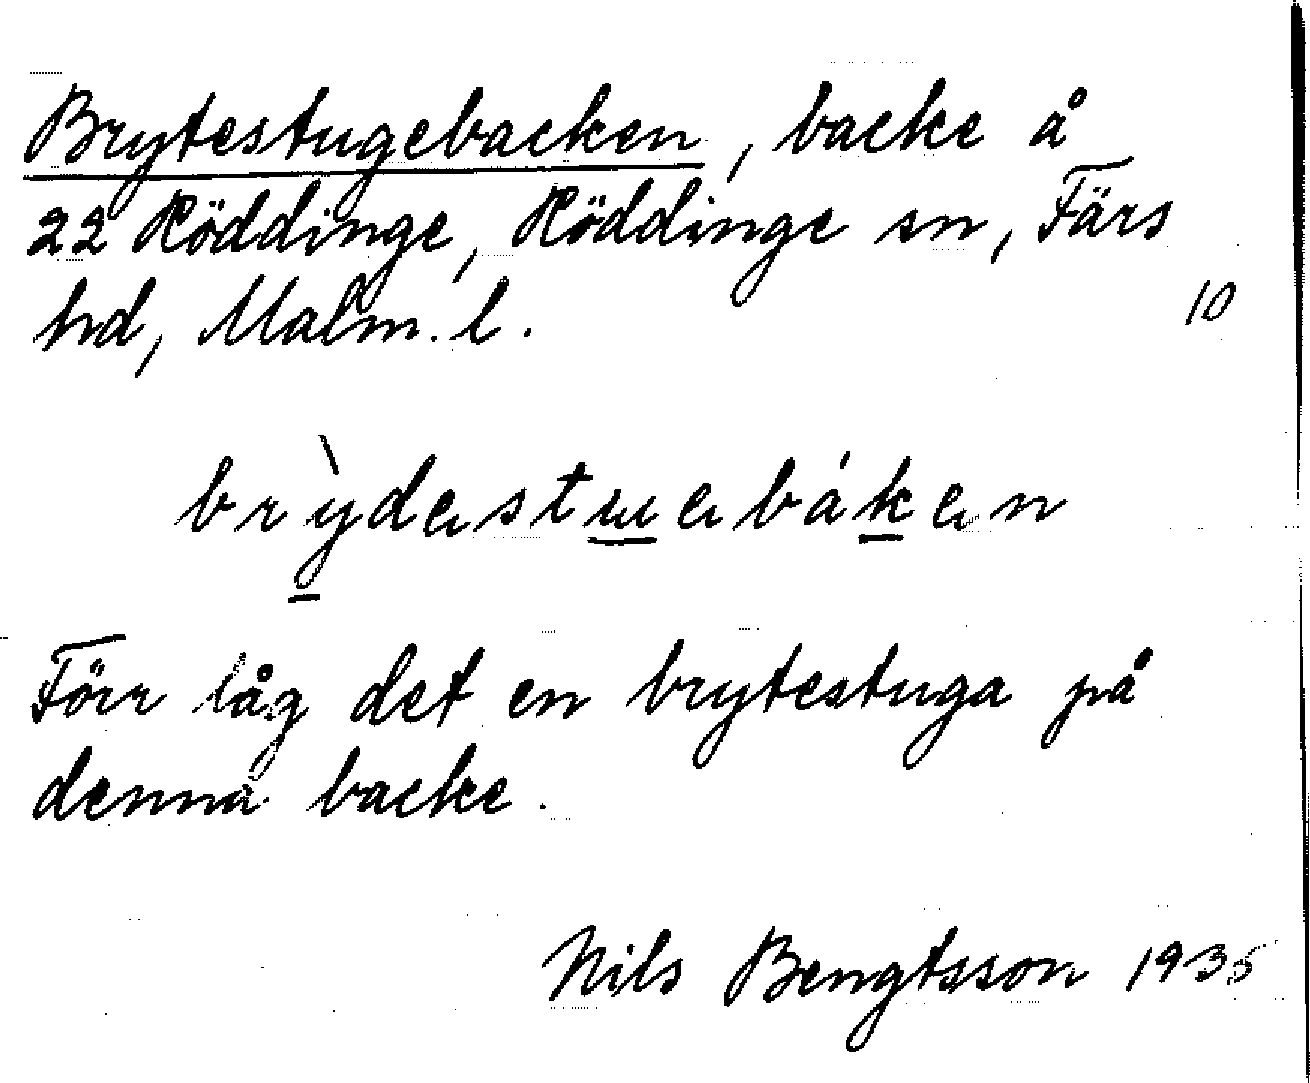 Brytestugebacken, backe å
22 Röddinge, Röddinge sn, Färs
hd, Malm. l.
10
brỳdestɯebáken
Förr låg det en brytestuga på
denna backe.
Nils Bengtsson 1935